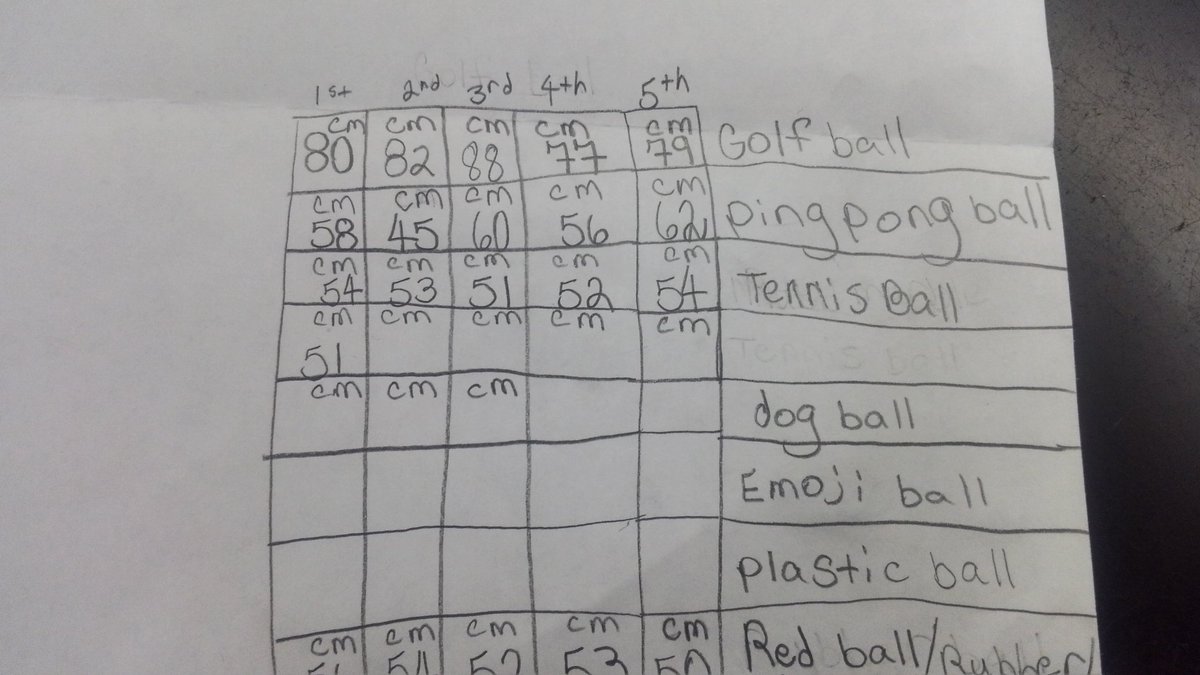 1st 2nd 3rd 4th 5th
cm cm cm cm cm
80 82 88 77 79 Golf ball
cm cm cm cm cm
58 45 60 56 62 ping pong ball
cm cm cm cm cm
54 53 51 52 54 Tennis Ball
cm cm cm cm cm
51 Tennis ball
cm cm cm
dog ball
Emoji ball
plastic ball
cm cm cm cm cm
54 52 53 50 Red ball/Rubber/